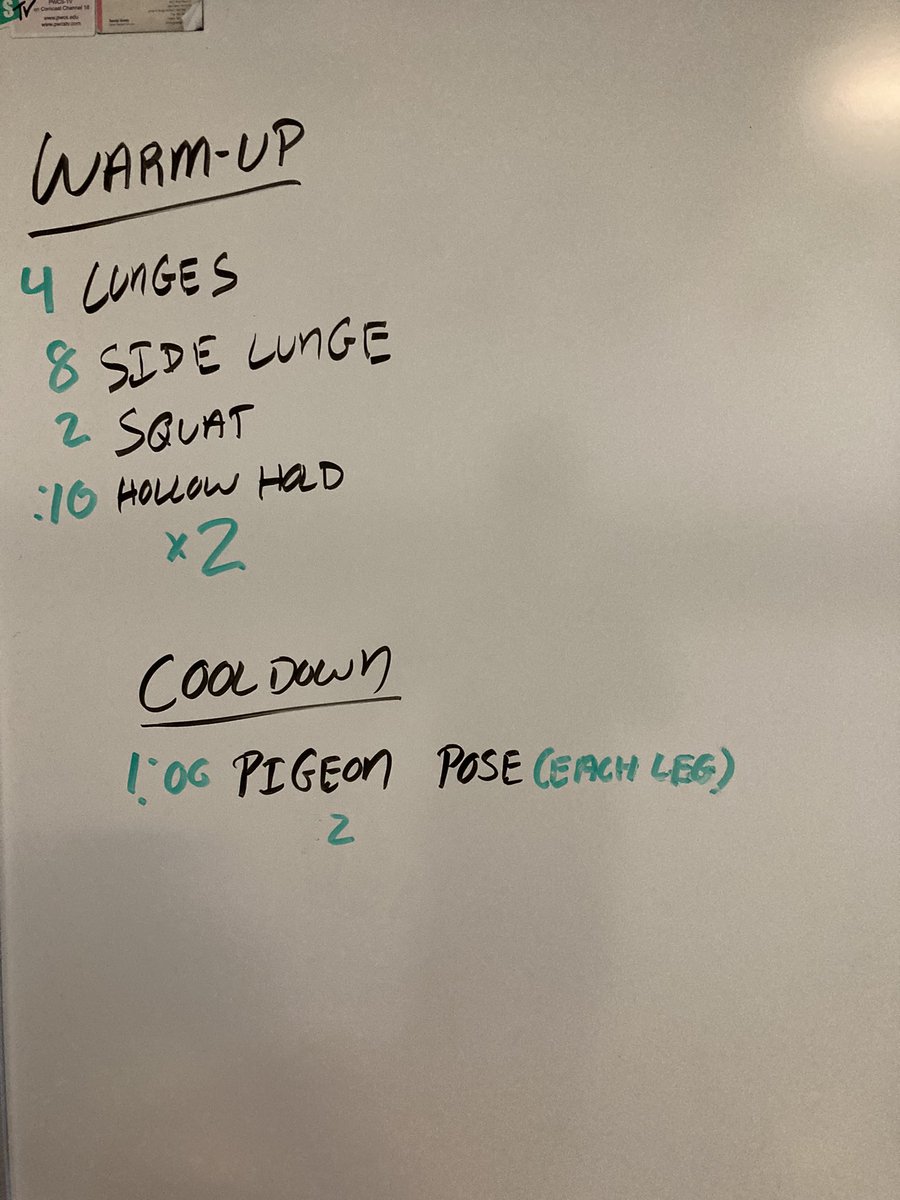 TV
PWCS-TV
on Comcast Channel 18
www.pwcs.edu
www.pwcstv.com
WARM-UP
4 LUNGES
8 SIDE LUNGE
2 SQUAT
:10 HOLLOW HOLD
x2
COOLDOWN
1:00 PIGEON POSE (EACH LEG)
2